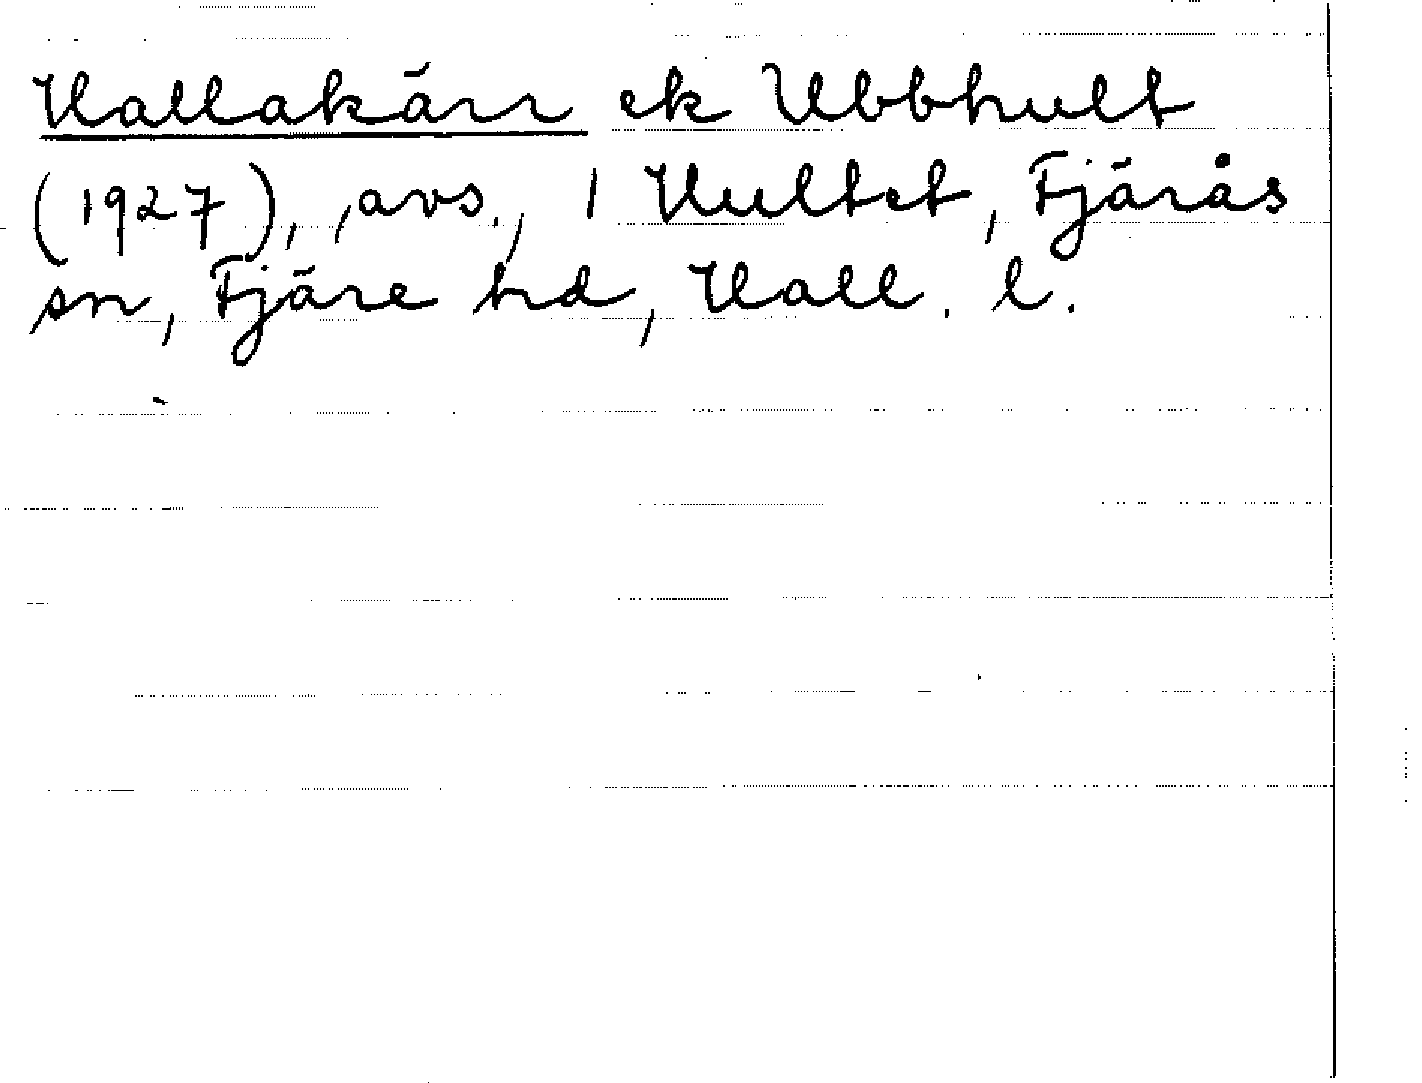 Hallakärr ek Ubbhult
(1927), ,avs., 1 Hultet, Fjärås
sn, Fjäre hd, Hall. l.